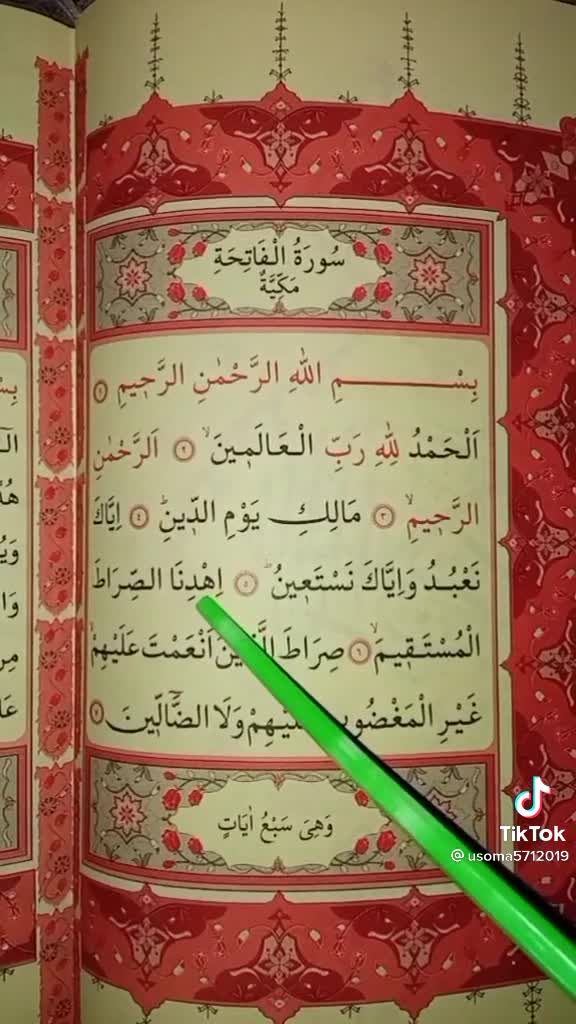 سُورَةُ الْفَاتِحَةِ
مَكِّيَّةٌ
بِسْمِ اللّٰهِ الرَّحْمٰنِ الرَّح۪يمِ ١
اَلْحَمْدُ لِلّٰهِ رَبِّ الْعَالَم۪ينَۙ ٢ اَلرَّحْمٰنِ
الرَّح۪يمِۙ ٣ مَالِكِ يَوْمِ الدّ۪ينِۜ ٤ اِيَّاكَ
نَعْبُدُ وَاِيَّاكَ نَسْتَع۪ينُۜ ٥ اِهْدِنَا الصِّرَاطَ
الْمُسْتَق۪يمَۙ ٦ صِرَاطَ اَنْعَمْتَ عَلَيْهِمْۙ
غَيْرِ الْمَغْضُوبِ وَلَا الضَّٓالّ۪ينَ ٧
وَهِىَ سَبْعُ اٰيَاتٍ
TikTok
@usoma5712019